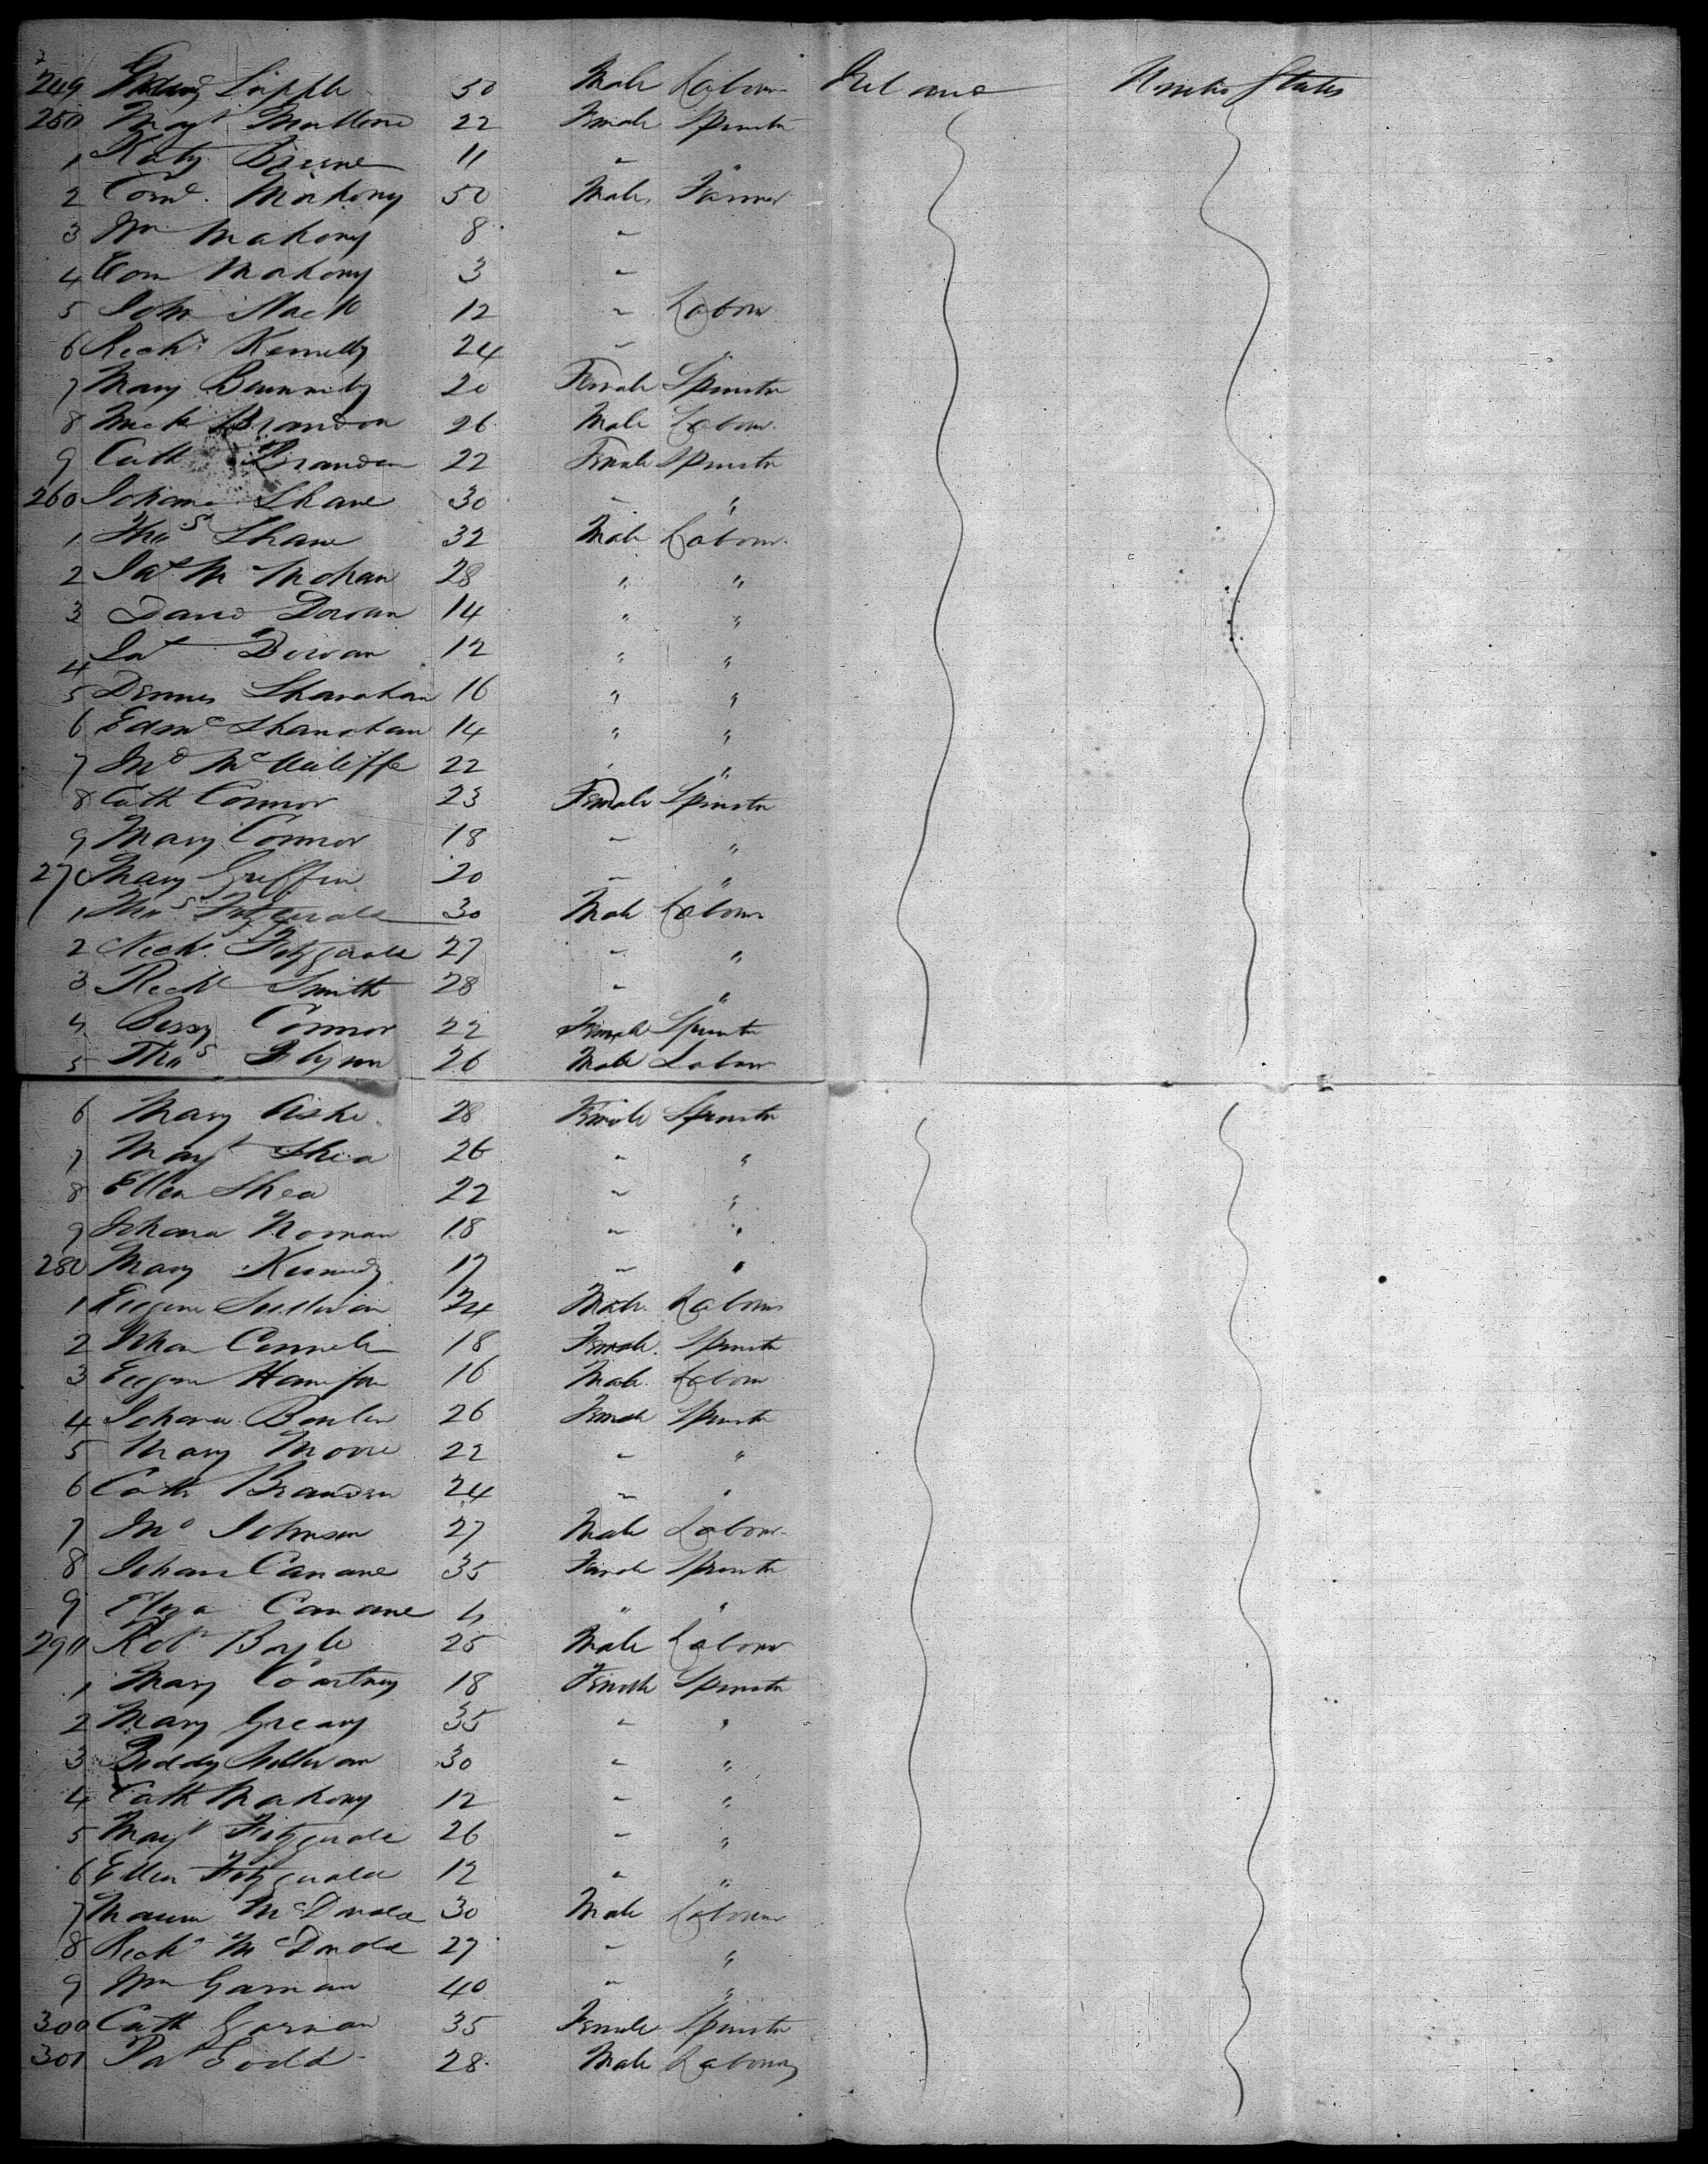 249 Lipple 50 Male Labour Ireland United States
250 Margt Mallone 22 Female Spinster
1 Katy Breene 11 " "
2 Cornl. Mahony 50 Male Farmer
3 Wm Mahony 8 "
4 Con Mahony 3 "
5 John Nack 12 " Labour
6 Richd Kennelly 24 " "
7 Mary 20 Female Spinster
8 Mich Brandon 26 Male Labour
9 Cath Brandon 22 Female Spinster
260 Johana Shane 30 " "
1 Thos Shane 32 Male Labour
2 Pat McMohan 28 " "
3 David Dowan 14 " "
4 Pat Dowan 12 " "
5 Dennis Shanahan 16 " "
6 Edmd Shanahan 14 " "
7 Jno McAuliffe 22 " "
8 Cath Connor 23 Female Spinster
9 Mary Connor 18 " "
270 Mary Griffin 20 " "
1 Thos Fitzgerald 30 Male Labour
2 Nichs. Fitzgerald 27 " "
3 Richd Smith 28 " "
4 Bessy Connor 22 Female Spinster
5 Thos Flynn 26 Male Labour
6 Mary 28 Female Spinster
7 Margt Shea 26 " "
8 Ellen Shea 22 " "
9 Johana Noonan 18 " "
280 Mary Kennedy 17 " "
1 Eugene Sullivan 24 Male Labour
2 Johan 18 Female Spinster
3 Eugene 16 Male Labour
4 Johana 26 Female Spinster
5 Mary Moore 22 " "
6 Cath Brandon 24 " "
7 Jno Johnson 27 Male Labour
8 Johana Canane 35 Female Spinster
9 Canane 4 " "
290 Robt Boyle 25 Male Labour
1 Mary Courtney 18 Female Spinster
2 Mary Greany 35 " "
3 Biddy Sullivan 30 " "
4 Cath Mahony 12 " "
5 Margt Fitzgerald 26 " "
6 Ellen Fitzgerald 12 " "
7 McDonald 30 Male Labour
8 Richd McDonald 27 " "
9 Wm Garnan 40 " "
300 Cath Garnan 35 Female Spinster
301 Pat 28 Male Labour